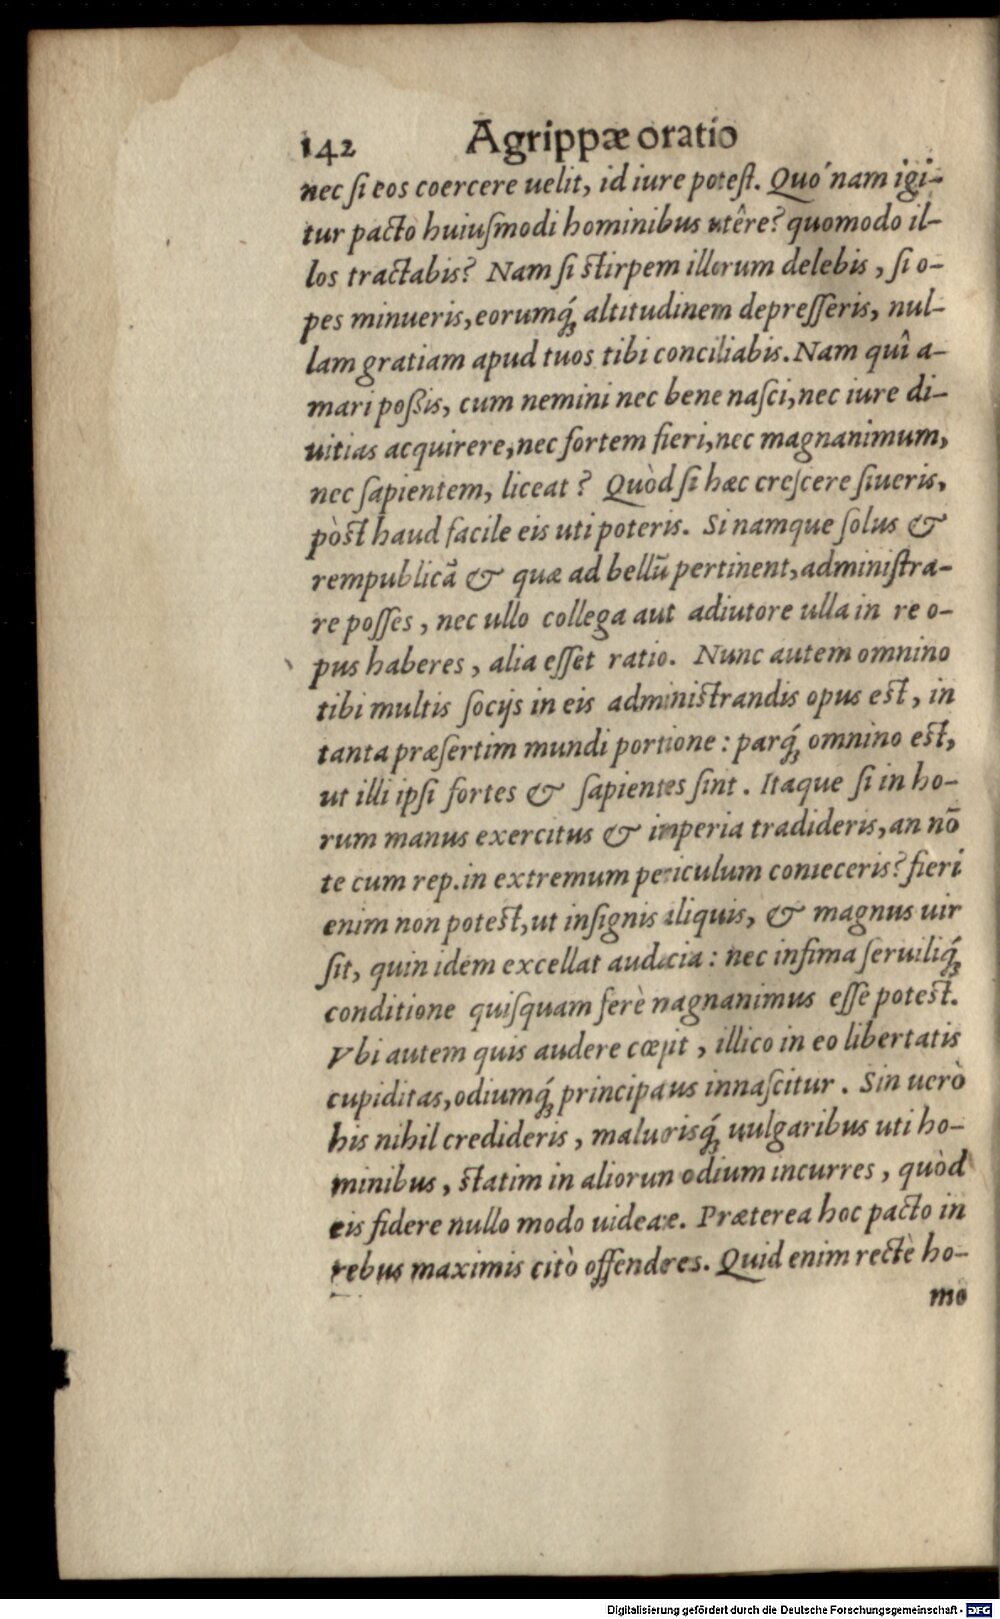 142 Agrippæ oratio
nec ſi eos coercere uelit, id iure poteſt. Quó nam igi-
tur pacto huiuſmodi hominibus utêre? quomodo il-
los tractabis? Nam ſi ſtirpem illorum delebis, ſi o-
pes minueris, eorumq́; altitudinem depreſſeris, nul-
lam gratiam apud tuos tibi conciliabis. Nam quî a-
mari poßis, cum nemini nec bene naſci, nec iure di-
uitias acquirere, nec fortem fieri, nec magnanimum,
nec ſapientem, liceat? Quòd ſi hæc creſcere ſiueris,
pòſt haud facile eis uti poteris. Si namque ſolus &
rempublicã & quæ ad bellũ pertinent, adminiſtra-
re poſſes, nec ullo collega aut adiutore ulla in re o-
pus haberes, alia eſſet ratio. Nunc autem omnino
tibi multis ſocijs in eis adminiſtrandis opus eſt, in
tanta præſertim mundi portione: parq́; omnino eſt,
ut illi ipſi fortes & ſapientes ſint. Itaque ſi in ho-
rum manus exercitus & imperia tradideris, an nõ
te cum rep. in extremum periculum conieceris? fieri
enim non poteſt, ut inſignis aliquis, & magnus uir
ſit, quin idem excellat audacia: nec infima ſeruiliq́;
conditione quiſquam ferè magnanimus eſſe poteſt.
Vbi autem quis audere cœpit, illico in eo libertatis
cupiditas, odiumq́; principatus innaſcitur. Sin uerò
his nihil credideris, maluerisq́; uulgaribus uti ho-
minibus, ſtatim in aliorum odium incurres, quòd
eis fidere nullo modo uideare. Præterea hoc pacto in
rebus maximis citò offenderes. Quid enim rectè ho-
mo
Digitalisierung gefördert durch die Deutsche Forschungsgemeinschaft - DFG